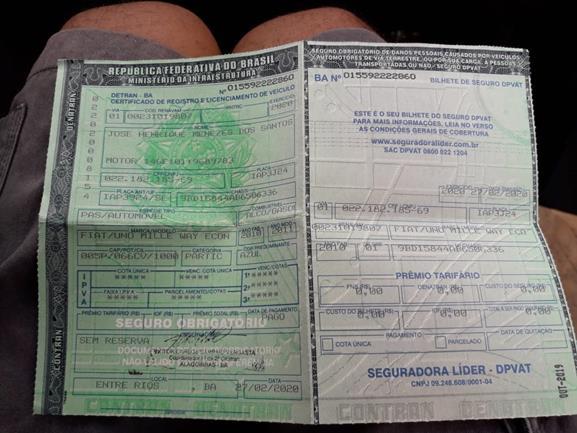 REPÚBLICA FEDERATIVA DO BRASIL
MINISTÉRIO DA INFRAESTRUTURA
DETRAN - BA
Nº 015592222860
CERTIFICADO DE REGISTRO E LICENCIAMENTO DE VEÍCULO
VIA
CÓD. RENAVAM
EXERCÍCIO
01 00231019807
2020
NOME
JOSE HENRIQUE MENEZES DOS SANTOS
022.182.185-69
IAP3J24
PLACA ANT/UF
ESPÉCIE TIPO
PAS/AUTOMOVEL
ALCO/GASOL
MARCA/MODELO
FIAT/UNO MILLE WAY ECON
2010
2011
CAP/POT/CIL
CATEGORIA
COR PREDOMINANTE
005P/066CV/1000
PARTIC
AZUL
IPVA
COTA ÚNICA
VENC. COTA ÚNICA
VENC./COTAS
1ª *****
FAIXA I.P.V.A.
PARCELAMENTO/COTAS
2ª *****
3ª *****
PRÊMIO TARIFÁRIO (R$)
IOF (R$)
PRÊMIO TOTAL (R$)
DATA DE PAGAMENTO
PAGO
SEGURO OBRIGATÓRIO
SEM RESERVA
ALAGOINHAS - BA
LOCAL
DATA
ENTRE RIOS , BA
27/02/2020
CONTRAN
DENATRAN
SEGURO OBRIGATÓRIO DE DANOS PESSOAIS CAUSADOS POR VEÍCULOS
AUTOMOTORES DE VIA TERRESTRE, OU POR SUA CARGA, A PESSOAS
TRANSPORTADAS OU NÃO - SEGURO DPVAT
BA Nº 015592222860
BILHETE DE SEGURO DPVAT
ESTE É O SEU BILHETE DO SEGURO DPVAT
PARA MAIS INFORMAÇÕES, LEIA NO VERSO
AS CONDIÇÕES GERAIS DE COBERTURA
www.seguradoralider.com.br
SAC DPVAT 0800 022 1204
2020
27/02/2020
01
022.182.185-69
IAP3J24
00231019807
FIAT/UNO MILLE WAY ECON
01
PRÊMIO TARIFÁRIO
FNS (R$)
DENATRAN (R$)
CUSTO DO SEGURO (R$)
0,00
0,00
0,00
CUSTO DO BILHETE (R$)
IOF (R$)
0,00
0,00
0,00
PAGAMENTO
DATA DE QUITAÇÃO
COTA ÚNICA
PARCELADO
SEGURADORA LÍDER - DPVAT
CNPJ 09.248.608/0001-04
OUT-2019
CONTRAN
DENATRAN